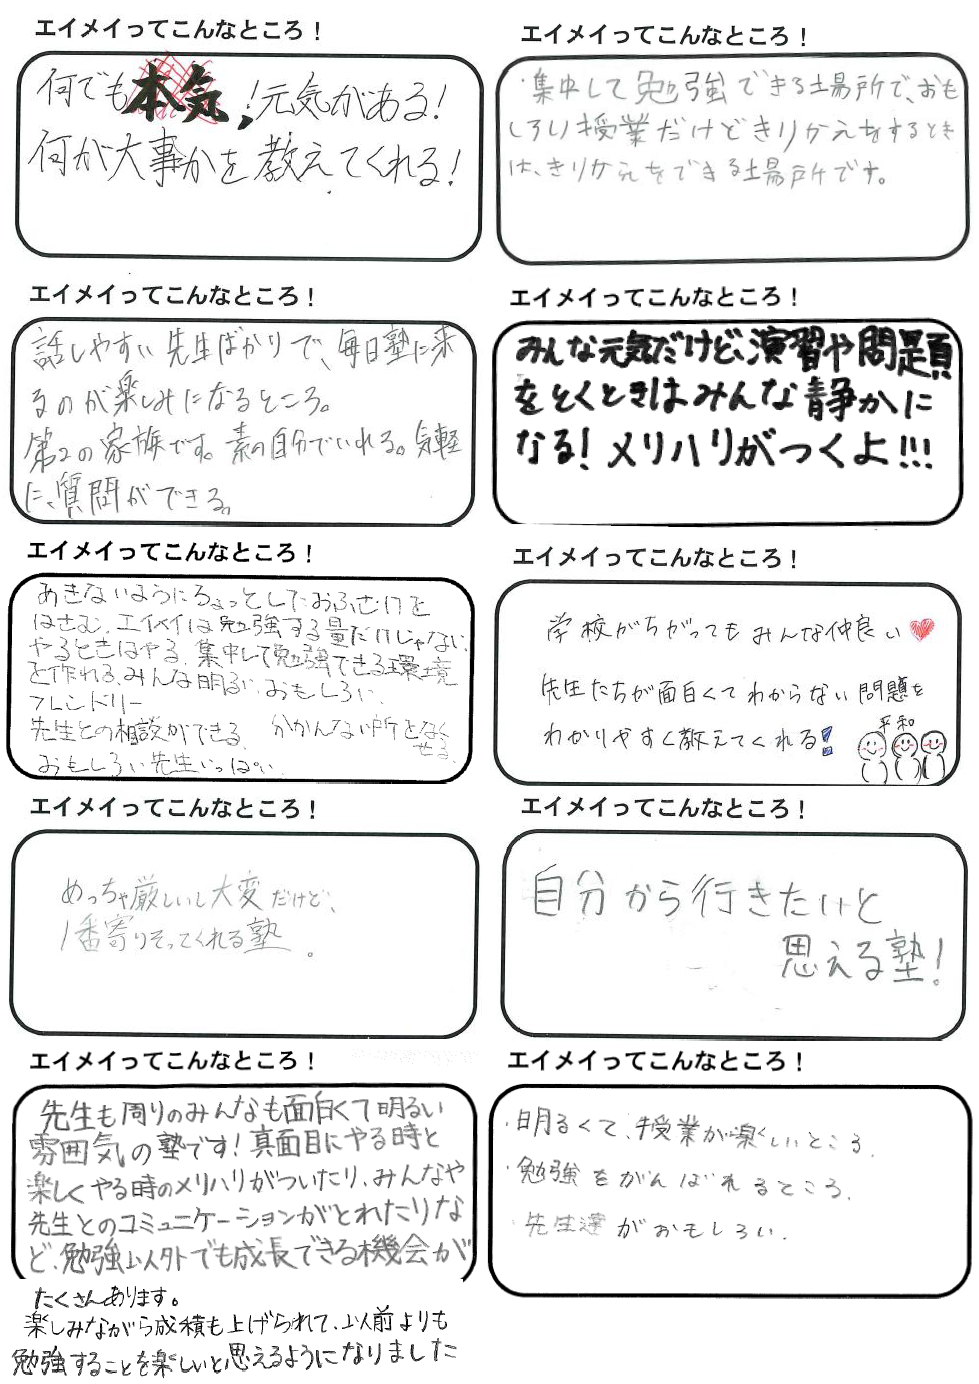 エイメイってこんなところ！
何でも本気！元気がある！
何が大事かを教えてくれる！
エイメイってこんなところ！
・集中して勉強できる場所で、おも
しろい授業だけどきりかえをするとき
は、きりかえをできる場所です。
エイメイってこんなところ！
話しやすい先生ばかりで、毎日塾に来
るのが楽しみになるところ。
第2の家族です。素の自分でいれる。気軽
に、質問ができる。
エイメイってこんなところ！
みんな元気だけど、演習や問題
をとくときはみんな静かに
なる！メリハリがつくよ!!!
エイメイってこんなところ！
あきないようにちょっとしたおふざけを
はさむ、エイメイは勉強する量だけじゃない、
やるときはやる、集中して勉強できる環境
を作れる、みんな明るい、おもしろい、
フレンドリー
先生との相談ができる、わかんない所をなく
せる、
おもしろい先生いっぱい、
エイメイってこんなところ！
学校がちがってもみんな仲良い
先生たちが面白くてわからない問題を
わかりやすく教えてくれる！
平和
エイメイってこんなところ！
めっちゃ厳しいし大変だけど、
1番寄りそってくれる塾。
エイメイってこんなところ！
自分から行きたいと
思える塾！
エイメイってこんなところ！
先生も周りのみんなも面白くて明るい
雰囲気の塾です！真面目にやる時と
楽しくやる時のメリハリがついたり、みんなや
先生とのコミュニケーションがとれたりな
ど、勉強以外でも成長できる機会が
たくさんあります。
楽しみながら成積も上げられて、以前よりも
勉強することを楽しいと思えるようになりました
エイメイってこんなところ！
・明るくて、授業が楽しいところ、
・勉強をがんばれるところ、
・先生達がおもしろい、